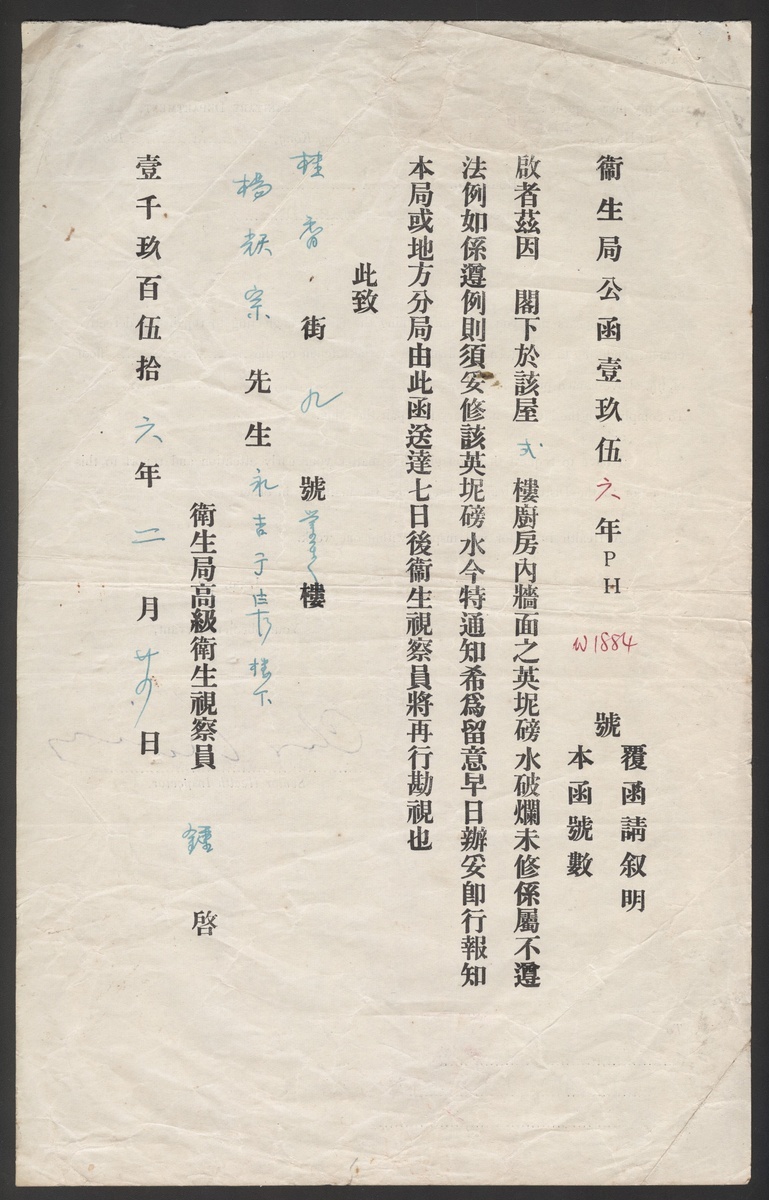 衞生局公函壹玖伍六年PH W1884 號
覆函請叙明
本函號數
啟者茲因　閣下於該屋弍樓廚房內牆面之英坭磅水破爛未修係屬不遵
法例如係遵例則須妥修該英坭磅水今特通知希為留意早日辦妥即行報知
本局或地方分局由此函送達七日後衞生視察員將再行勘視也
此致
桂香街九號樓
楊宗先生
衛生局高級衛生視察員 鍾 啓
壹千玖百伍拾六年二月日